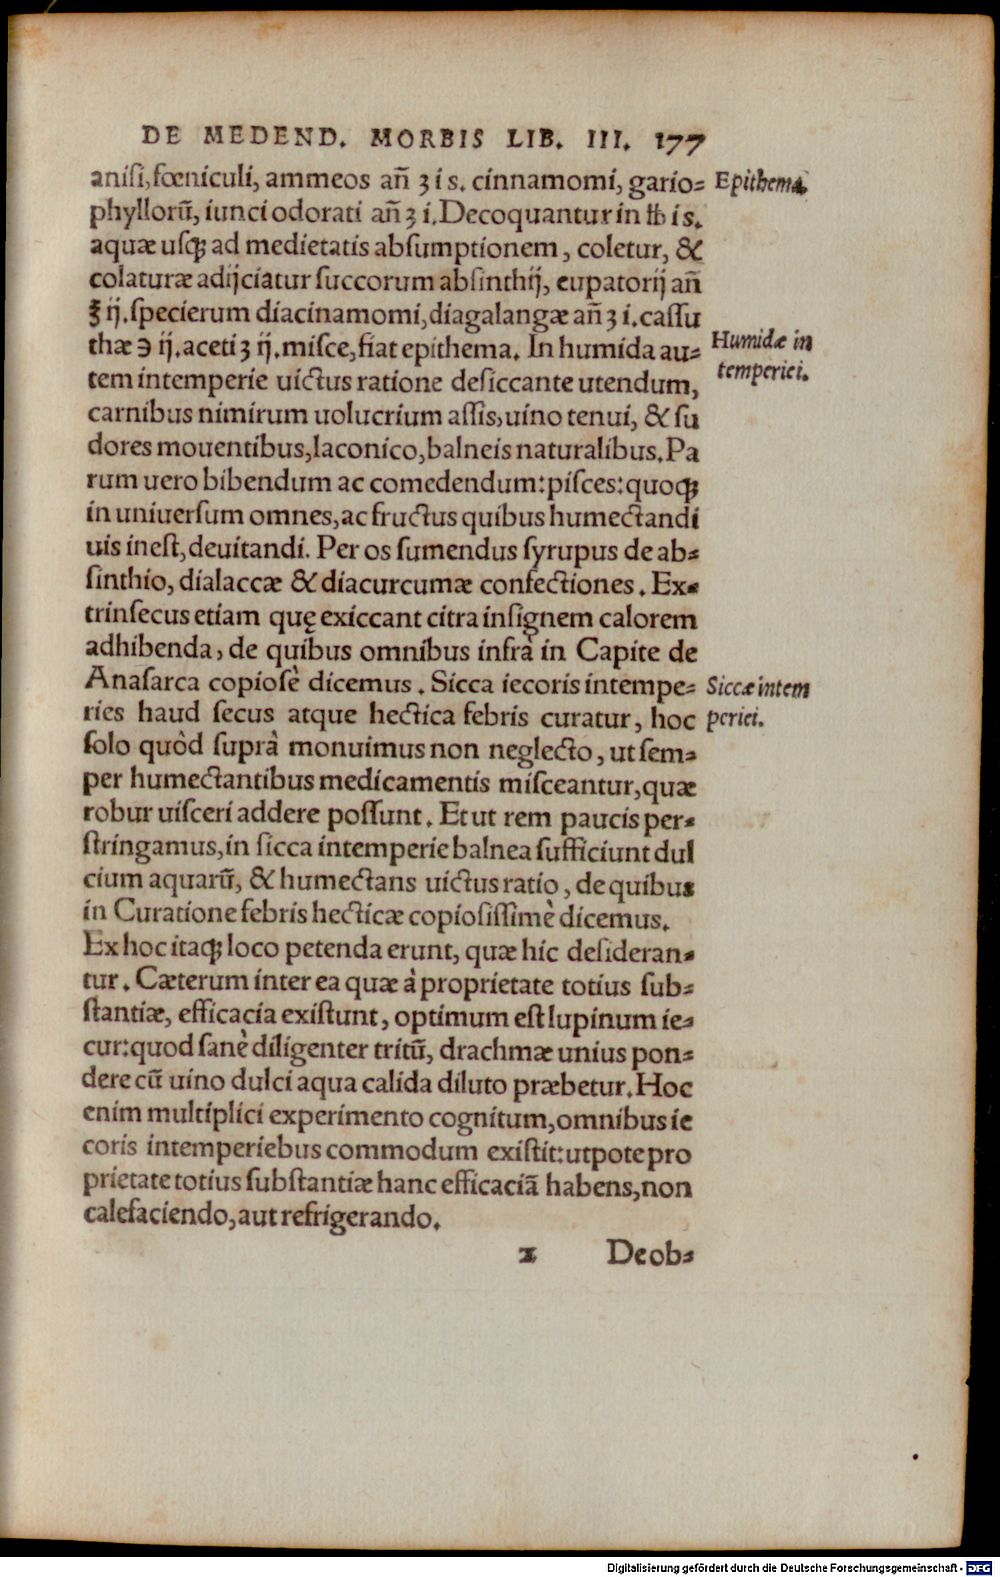 DE MEDEND. MORBIS LIB. III. 177
anisi, fœniculi, ammeos añ ʒ i s. cinnamomi, gario-
Epithema.
phyllorũ, iunci odorati añ ʒ i. Decoquantur in ℔ i s.
aquæ usq; ad medietatis absumptionem, coletur, &
colaturæ adijciatur succorum absinthij, eupatorij añ
℥ ij. specierum diacinamomi, diagalangæ añ ʒ i. cassu
thæ ℈ ij. aceti ʒ ij. misce, fiat epithema. In humida au-
Humidæ in
temperiei.
tem intemperie uictus ratione desiccante utendum,
carnibus nimirum uolucrium assis, uino tenui, & su
dores mouentibus, laconico, balneis naturalibus. Pa
rum uero bibendum ac comedendum: pisces: quoq;
in uniuersum omnes, ac fructus quibus humectandi
uis inest, deuitandi. Per os sumendus syrupus de ab-
sinthio, dialaccæ & diacurcumæ confectiones. Ex-
trinsecus etiam quę exiccant citra insignem calorem
adhibenda, de quibus omnibus infrà in Capite de
Anasarca copiosè dicemus. Sicca iecoris intempe-
Siccæ intem
periei.
ries haud secus atque hectica febris curatur, hoc
solo quòd suprà monuimus non neglecto, ut sem-
per humectantibus medicamentis misceantur, quæ
robur uisceri addere possunt. Et ut rem paucis per-
stringamus, in sicca intemperie balnea sufficiunt dul
cium aquarũ, & humectans uictus ratio, de quibus
in Curatione febris hecticæ copiosissimè dicemus.
Ex hoc itaq; loco petenda erunt, quæ hic desideran-
tur. Cæterum inter ea quæ à proprietate totius sub-
stantiæ, efficacia existunt, optimum est lupinum ie-
cur: quod sanè diligenter tritũ, drachmæ unius pon-
dere cũ uino dulci aqua calida diluto præbetur. Hoc
enim multiplici experimento cognitum, omnibus ie
coris intemperiebus commodum existit: utpote pro
prietate totius substantiæ hanc efficaciã habens, non
calefaciendo, aut refrigerando.
z De ob-
Digitalisierung gefördert durch die Deutsche Forschungsgemeinschaft - DFG